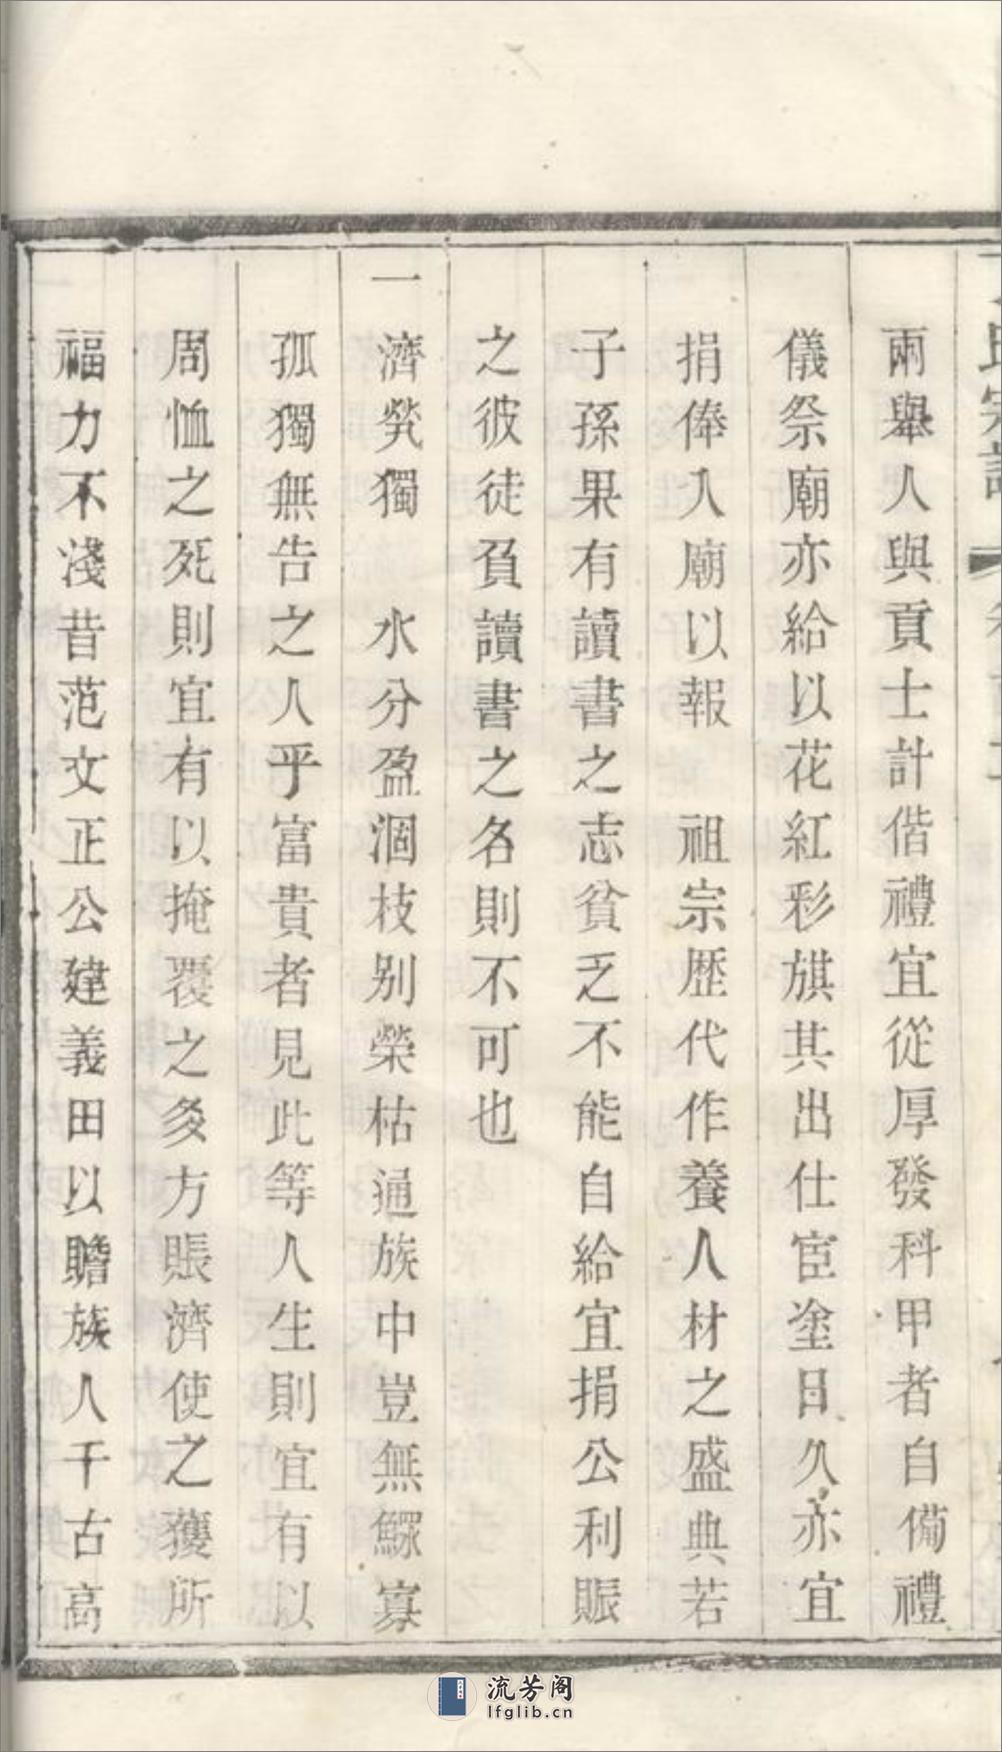 氏宗譜
兩舉人與貢士計偕禮宜從厚發科甲者自備禮
儀祭廟亦給以花紅彩旗其出仕宦塗日久亦宜
捐俸入廟以報 祖宗歷代作養人材之盛典若
子孫果有讀書之志貧乏不能自給宜捐公利賑
之彼徒負讀書之名則不可也
一 濟煢獨 水分盈涸枝别榮枯通族中豈無鰥寡
孤獨無告之人乎富貴者見此等人生則宜有以
周恤之死則宜有以掩覆之多方賬濟使之獲所
福力不淺昔范文正公建義田以贍族人千古高
流芳阁
lfglib.cn